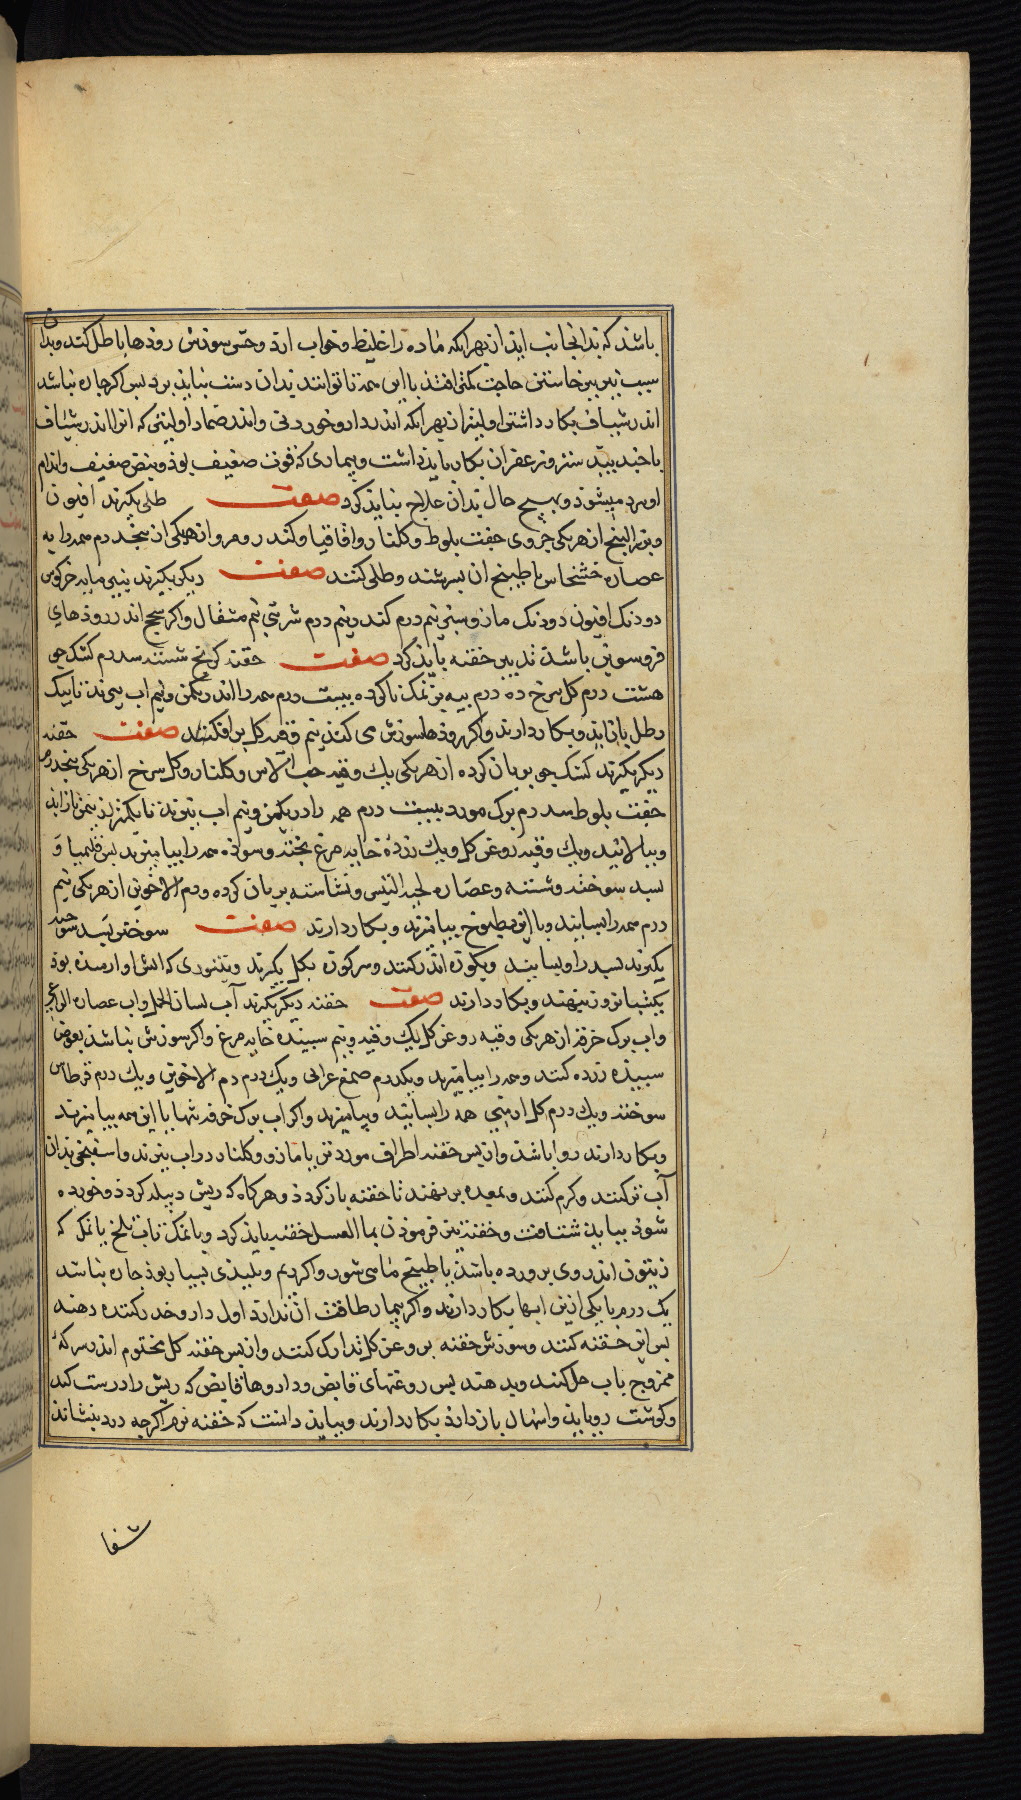 باشذ که بدانجانب ایذ ازبهر انکه ماده را غلیظ و خواب ارد و حس سوزش روذها باطل کند و بدان
سبب نیز ببرخاستن حاجت کمتر افتد با این همه تا توانند بدان دست نبایذ برد بس اکر جاره نباشد
اندر شیاف بکار داشتن اولیتر ازبهر انکه اندر دارو خوردنی و اندر ضماد اولیتر که اندر شیاف
با جندبیدستر و زعفران بکار بایذ داشت و بیماری که قوت ضعیف بوذ و نبض ضعیف و اندام
او سرد میشوذ و بهیچ حال بدان علاج نبایذ کرد صفت طلی بکیرند افیون
و بزر البنج ازهریکی جزوی جفت بلوط و کلنار و اقاقیا و کندر و مر وازهریکی ان بنجدرم همه را به
عصاره خشخاش یا طبیخ ان بسرشند و طلی کنند صفت دیکر بکیرند بنیرمایه خرکوش
دودنک افیون دودنک مازو سبز نیم درم کندر نیم درم شربتی نیم مثقال و اکر سحج اندر روذهای
فروسوین باشذ تدبیر حقنه بایذ کرد صفت حقنه کرنج شسته سدرم کشک جو
هشت درم کل سرخ ده درم بیه بز نمک ناکرده بیست درم همه را اندر یکمن و نیم اب ببزند تا بیک
رطل باز ایذ و بکار دارند و اکر روذها سوزش می کند نیم وقیه کل بر افکنند صفت حقنه
دیکر بکیرند کشک جو بریان کرده ازهریکی یک وقیه حب الاس و کلنار و کل سرخ ازهریکی بنجدرم
جفت بلوط سدرم برک مورد بیست درم همه را در یکمن و نیم اب ببزند تا بکمتر از نیمن باز ایذ
و ببالایند و یک وقیه روغن کل و یک زرده خایه مرغ بخته و سوذه همه را بیامیزند بس قلیمیا و
بسد سوخته و شسته و عصاره لحیة التیس و نشاسته بریان کرده و دم الاخوین ازهریکی نیم
درم همه را بسایند و با این مطبوخ بیامیزند و بکار دارند صفت سوختن بسد سوخته
بکیرند بسد را و بسایند و بکوزه اندر کنند و سر کوزه بکل بکیرند و بتنوری که اتش او ارمیذه بوذ
یکشبانروز بنهند و بکار دارند صفت حقنه دیکر بکیرند آب لسان الحمل و اب عصاره الراعی
و اب برک خرفه ازهریکی وقیه روغن کل یک وقیه و نیم سبیذه خایه مرغ و اکر سوزش نباشذ بعوض
سبیذه زرده کنند و همه را بیامیزند و یکدرم صمغ عرابی و یک درم دم الاخوین و یک درم قرطاس
سوخته و یک درم کل ارمنی همه را بسایند و بیامیزند و اکر اب برک خرفه تنها با این همه بیامیزند
و بکار دارند روا باشذ و از بس حقنه اطراف مورد تر با مازو و کلنار در اب ببزند و اسفنجی بدان
آب تر کنند و کرم کنند و بمعده بر نهند تا حقنه باز کردذ و هرکاه که ریش دبیله کردذ و خورده
شوذ ببایذ شتافت و حقنه تیز فرموذن بماء العسل حقنه بایذ کرد و با نمک تاب تلخ یا نمک که
زیتون اندر وی برورده باشذ با طبیخ ماهی شور و اکر ریم و بلیذی بسیار بوذ جاره نباشد
یک درم با یکی ازین ابها بکار دارند و اکر بیمار طاقت ان ندارد اول دارو خدر کننده دهند
بس این حقنه کنند و سوزش حقنه بروغن کل تدارک کنند و از بس حقنه کل مختوم اندر سرکهٔ
ممزوج باب حل کنند و بدهند بس روغنهای قابض و داروها قابض که ریش را درست کند
و کوشت رویاند و اسهال باز دارد بکار دارند و ببایذ دانست که حقنه نرم اکرجه درد بنشاند
شفا